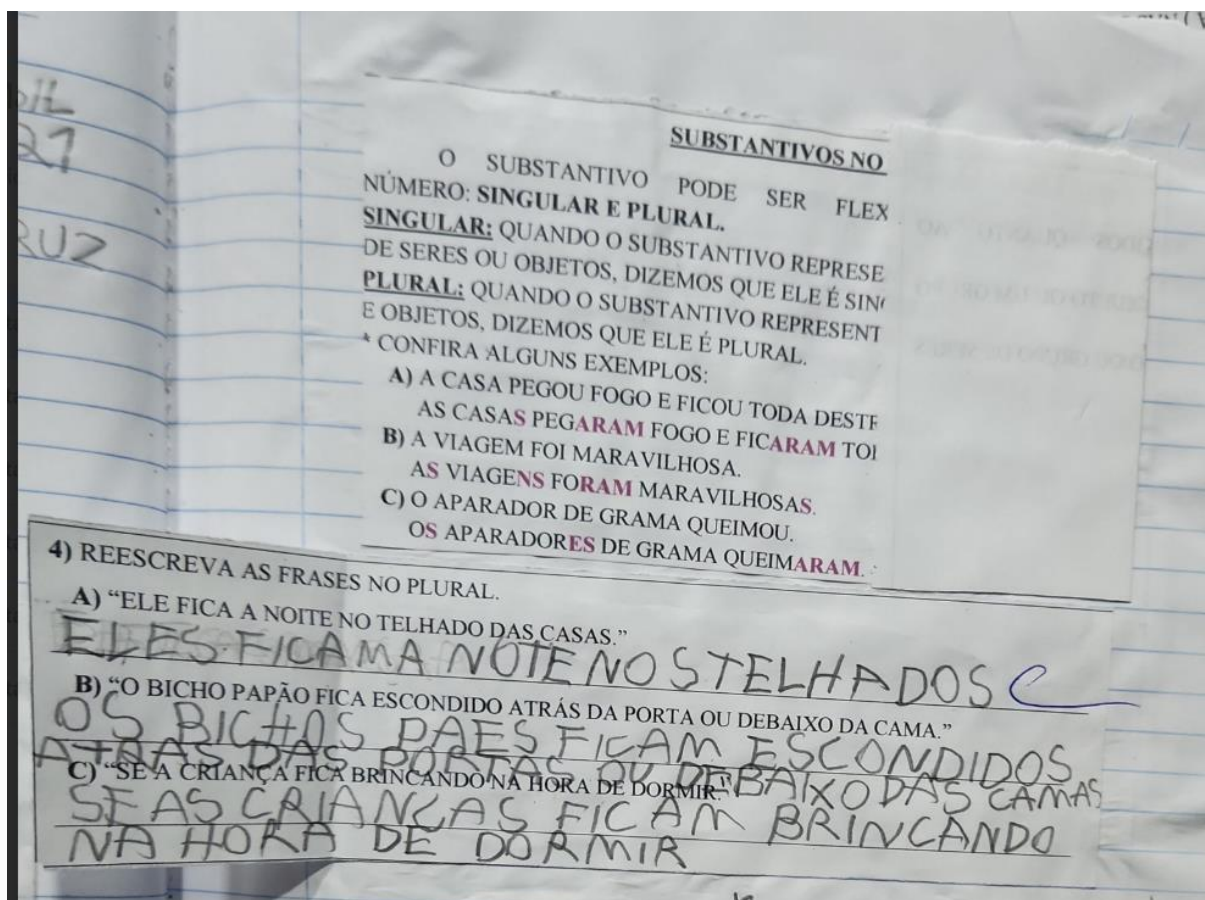 21
RUZ
SUBSTANTIVOS NO
O SUBSTANTIVO PODE SER FLEX
NÚMERO: SINGULAR E PLURAL.
SINGULAR: QUANDO O SUBSTANTIVO REPRESE
DE SERES OU OBJETOS, DIZEMOS QUE ELE É SING
PLURAL: QUANDO O SUBSTANTIVO REPRESENT
E OBJETOS, DIZEMOS QUE ELE É PLURAL.
* CONFIRA ALGUNS EXEMPLOS:
A) A CASA PEGOU FOGO E FICOU TODA DESTR
AS CASAS PEGARAM FOGO E FICARAM TOD
B) A VIAGEM FOI MARAVILHOSA.
AS VIAGENS FORAM MARAVILHOSAS.
C) O APARADOR DE GRAMA QUEIMOU.
OS APARADORES DE GRAMA QUEIMARAM.
4) REESCREVA AS FRASES NO PLURAL.
A) “ELE FICA A NOITE NO TELHADO DAS CASAS.”
ELES FICAM A NOTE NOS TELHADOS
B) “O BICHO PAPÃO FICA ESCONDIDO ATRÁS DA PORTA OU DEBAIXO DA CAMA.”
OS BICHOS PAES FICAM ESCONDIDOS
ATRAS DAS PORTAS OU DEBAIXO DAS CAMAS
C) “SE A CRIANÇA FICA BRINCANDO NA HORA DE DORMIR.”
SE AS CRIANÇAS FICAM BRINCANDO
NA HORA DE DORMIR